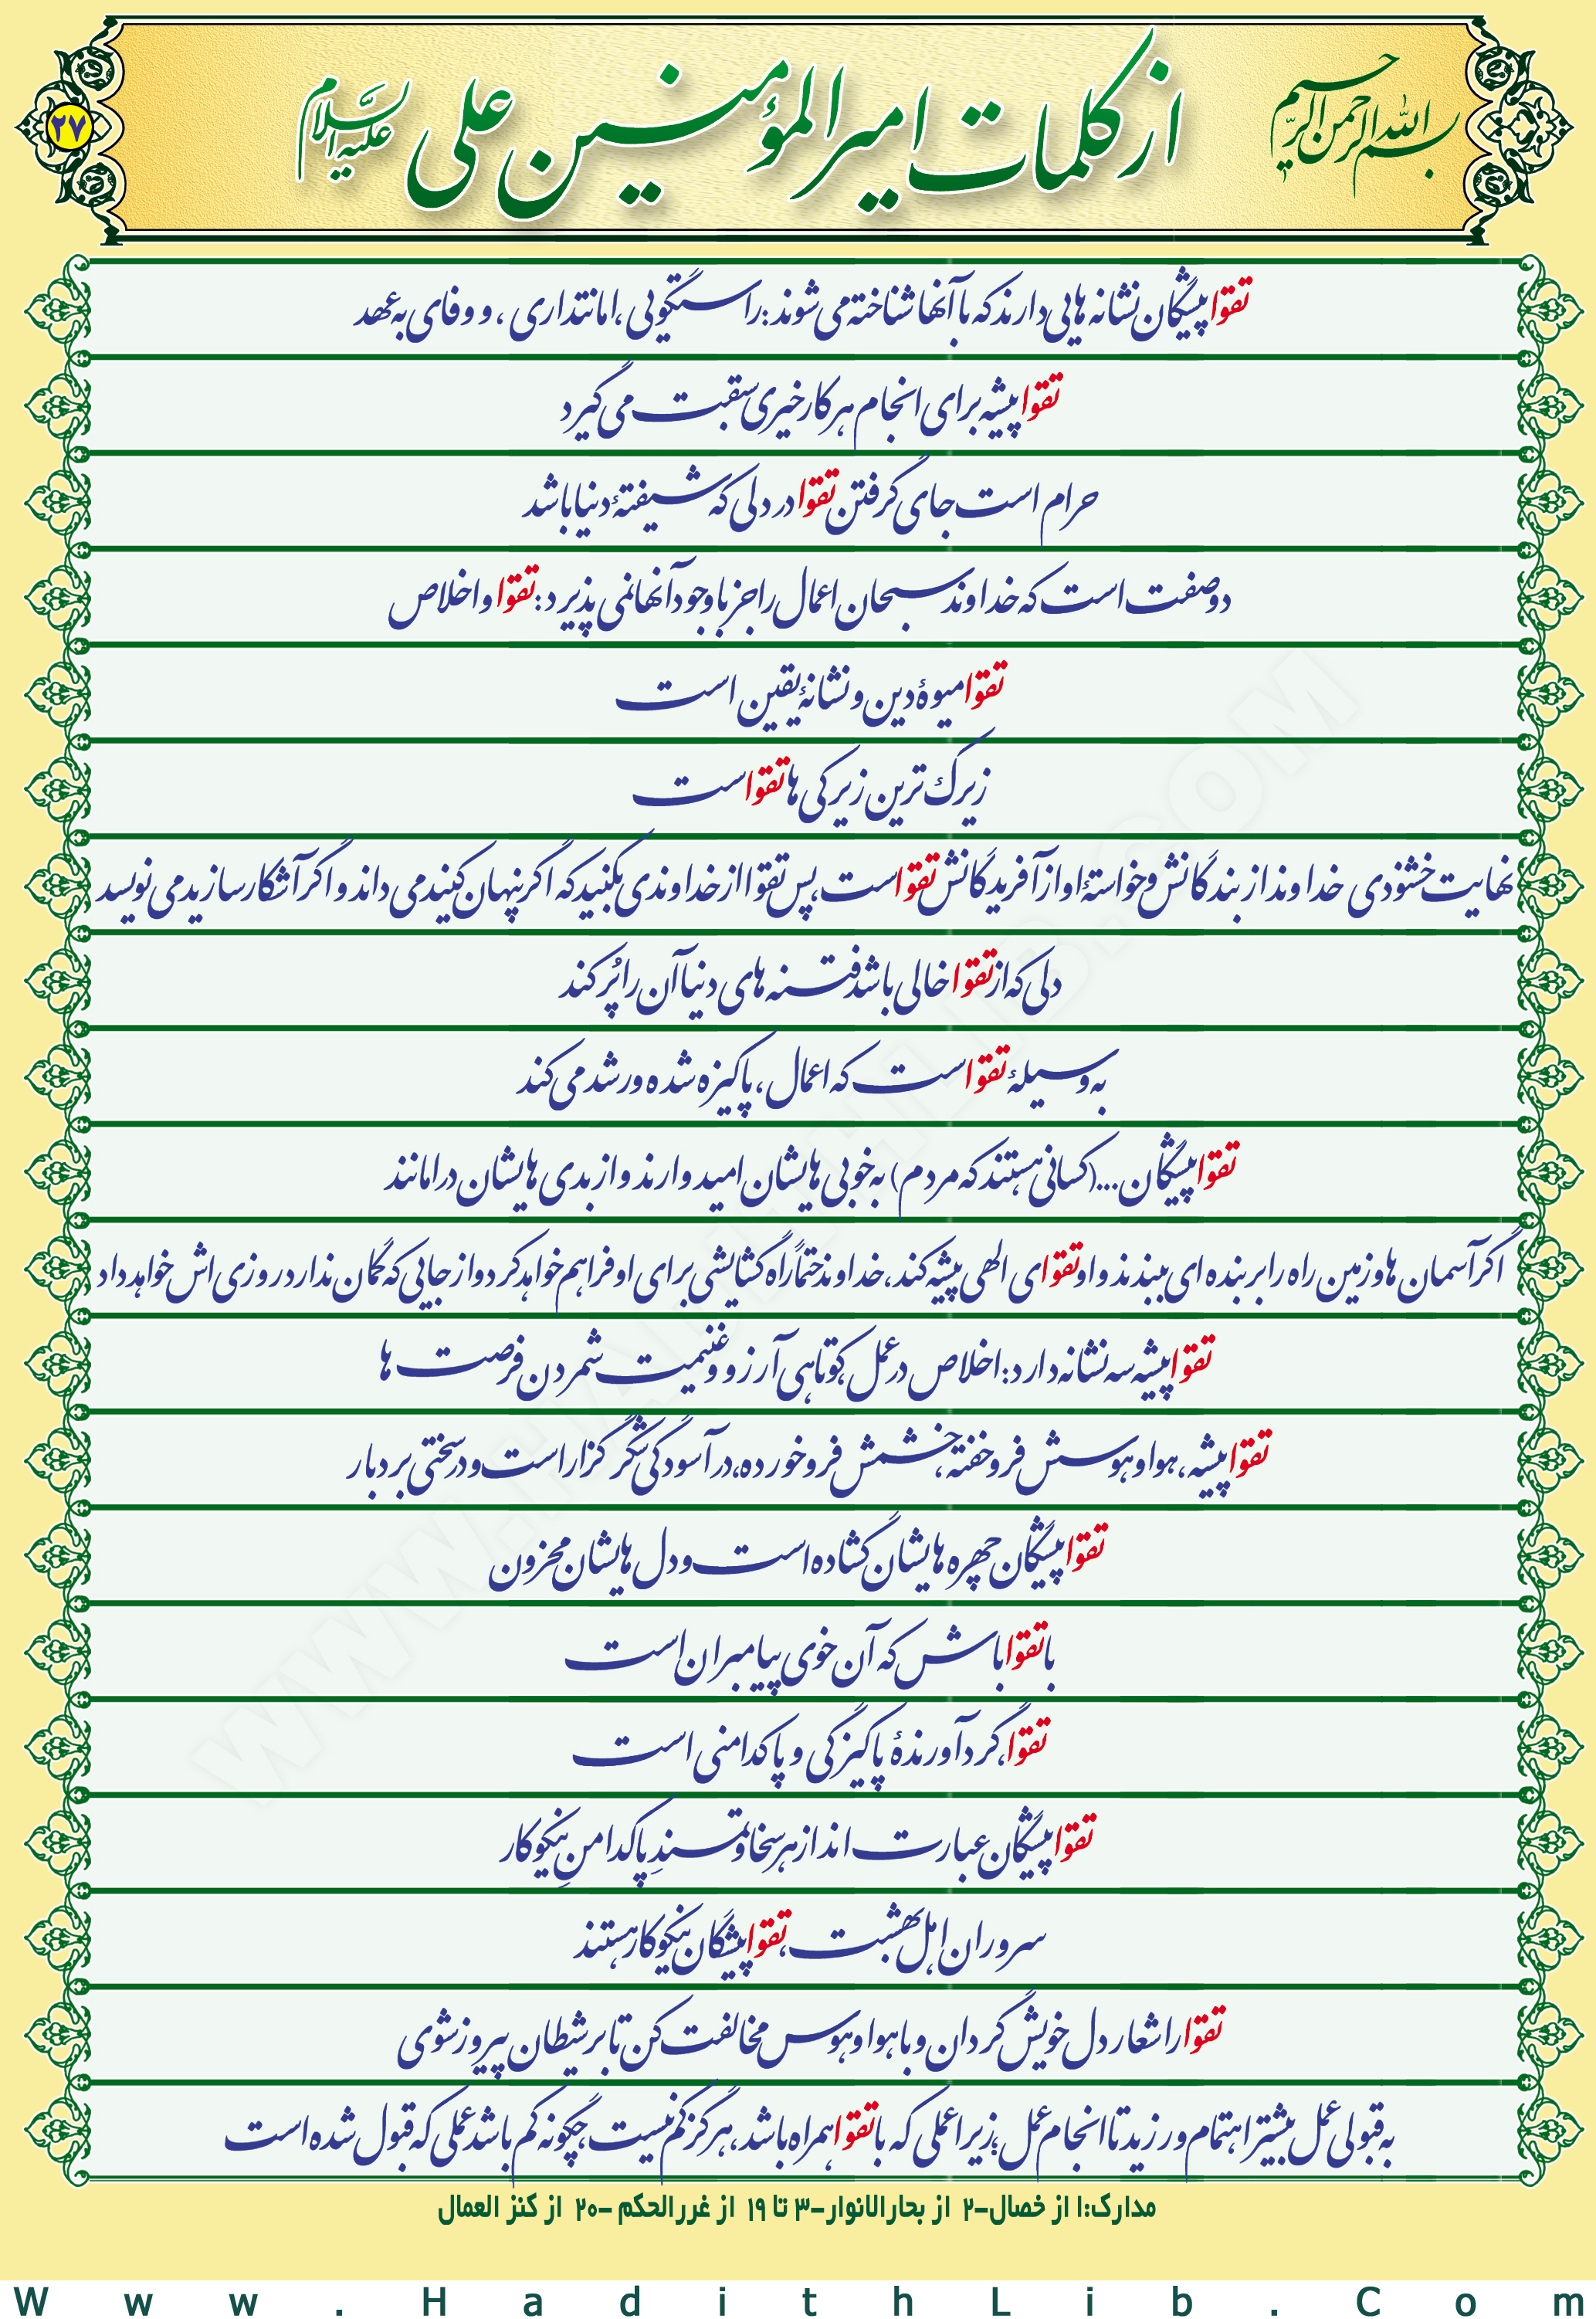 بسم الله الرحمن الرحیم
از کلمات امیر المؤمنین علی علیه السلام
۲۷
تقوا پیشگان نشانه هایی دارند که با آنها شناخته می شوند: راستگویی، امانتداری، و وفای به عهد
تقوا پیشه برای انجام هر کار خیری سقبت می گیرد
حرام است جای گرفتن تقوا در دلی که شیفتهٔ دنیا باشد
دو صفت است که خداوند سبحان اعمال را جز با وجود آنها نمی پذیرد: تقوا و اخلاص
تقوا میوهٔ دین و نشانهٔ یقین است
زیرک ترین زیرکی ها تقواست
نهایت خشنودی خداوند از بندگانش و خواستهٔ او از آفریدگانش تقواست، پس تقوا از خداوندی بکنید که اگر پنهان کنید می داند و اگر آشکار سازید می نویسد
دلی که از تقوا خالی باشد فتنه های دنیا آن را پُر کند
به وسیلهٔ تقواست که اعمال، پاکیزه شده و رشد می کند
تقوا پیشگان ...(کسانی هستند که مردم) به خوبی هایشان امید وارند و از بدی هایشان در امانند
اگر آسمان ها و زمین راه را بر بنده ای ببندند و او تقوای الهی پیشه کند، خداوند حتماً راه گشایشی برای او فراهم خواهد کرد و از جایی که گمان ندارد روزی اش خواهد داد
تقوا پیشه سه نشانه دارد: اخلاص در عمل، کوتاهی آرزو و غنیمت شمردن فرصت ها
تقوا پیشه، هوا و هوسش فرو خفته، خشمش فرو خورده، در آسودگی شکر گزار است و در سختی بردبار
تقوا پیشگان چهره هایشان گشاده است و دل هایشان محزون
با تقوا باش که آن خوی پیامبران است
تقوا، گرد آورندهٔ پاکیزگی و پاکدامنی است
تقوا پیشگان عبارت اند از هر سخاوتمندِ پاکدامنِ نیکوکار
سروران اهل بهشت، تقوا پیشگان نیکوکار هستند
تقوا را شعار دل خویش گردان و با هوا و هوس مخالفت کن تا بر شیطان پیروز شوی
به قبولی عمل بیشتر اهتمام ورزید تا انجام عمل؛ زیرا عملی که با تقوا همراه باشد، هرگز کم نیست، چگونه کم باشد عملی که قبول شده است
مدارک:۱ از خصال-۲ از بحارالانوار-۳ تا ۱۹ از غررالحکم -۲۰ از کنز العمال
Www.HadithLib.Com
WWW.HADITHLIB.COM